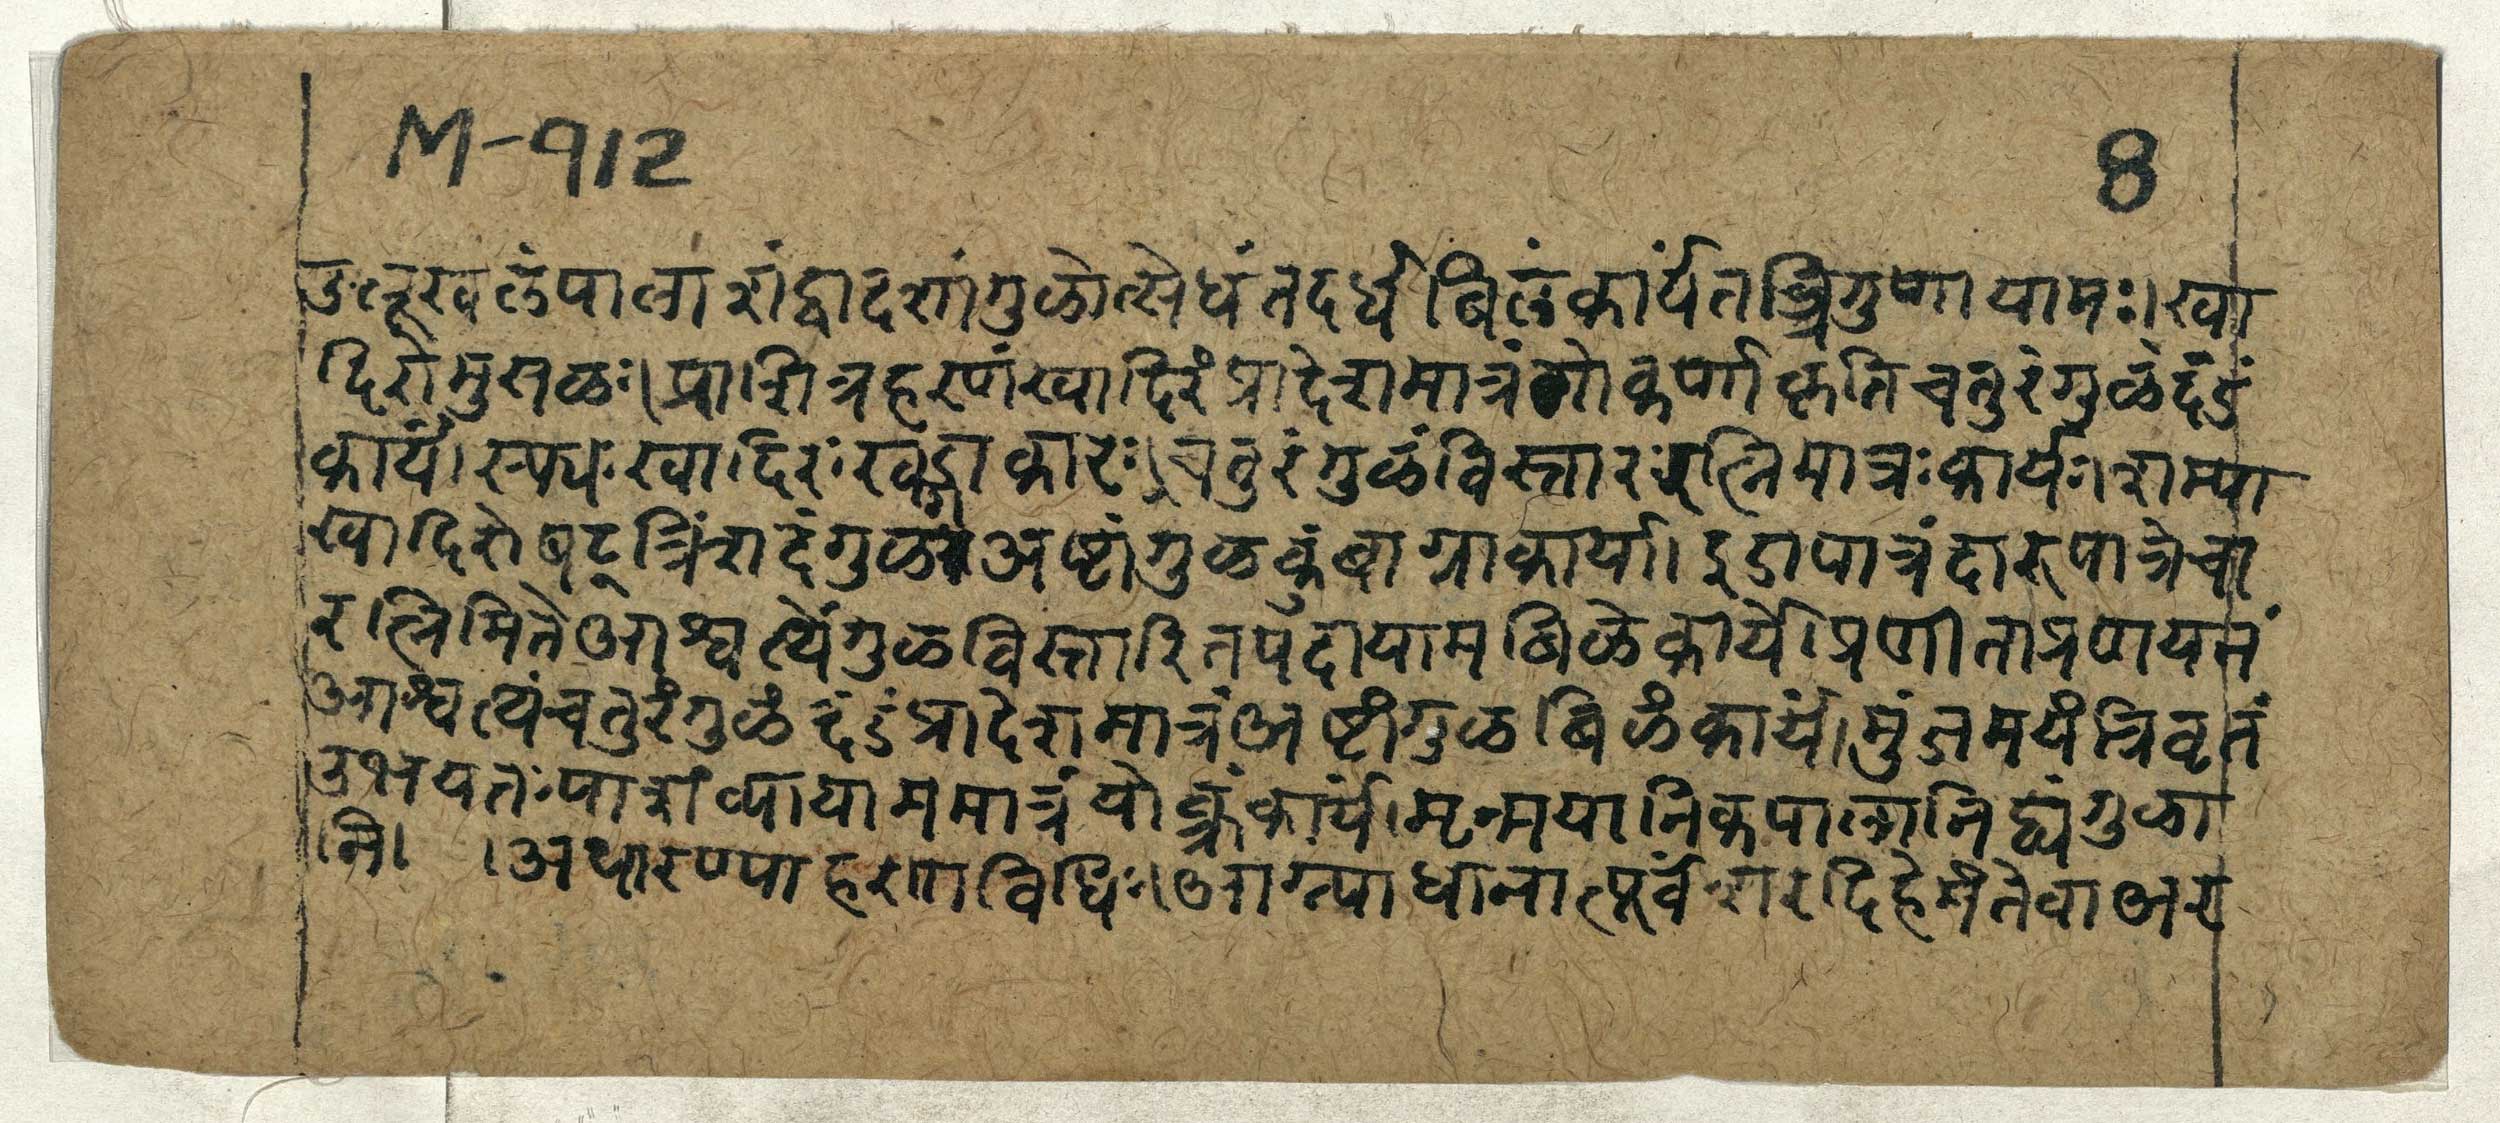 M-912 8
उलूखलंपालाशंद्वादशांगुळोत्सेधंतदर्धबिलंकार्यंतत्त्रिगुणायामः।खा
दिरोमुसळः।प्राशित्रहरणंखादिरंप्रादेशमात्रंगोकर्णाकृतिचतुरंगुळंदंडं
कार्यं।स्फ्यःखादिरःखड्गाकारः।चतुरंगुळंविस्तारःरत्निमात्रःकार्यः।शम्या
खादिरोषट्त्रिंशदंगुळाअष्टांगुळकुंबाग्राकार्या।इडापात्रंदारुपात्रेचा
रत्निमितेआश्वत्थ्येंगुळविस्तारितषदायामबिळेकार्ये।प्रणीताप्रणयनं
आश्वत्थ्यंचतुरंगुळंदंडंप्रादेशमात्रंअष्टांगुळबिळंकार्यं।मुंजमयंत्रिवृतं
उभयतःपाशंव्यायाममात्रंयोक्त्रंकार्यं।मृन्मयानिकपालानिद्व्यंगुळा
नि। ।अथारण्याहरणविधिः।आग्न्याधानात्पूर्वंशरदिहेमंतेवाअर